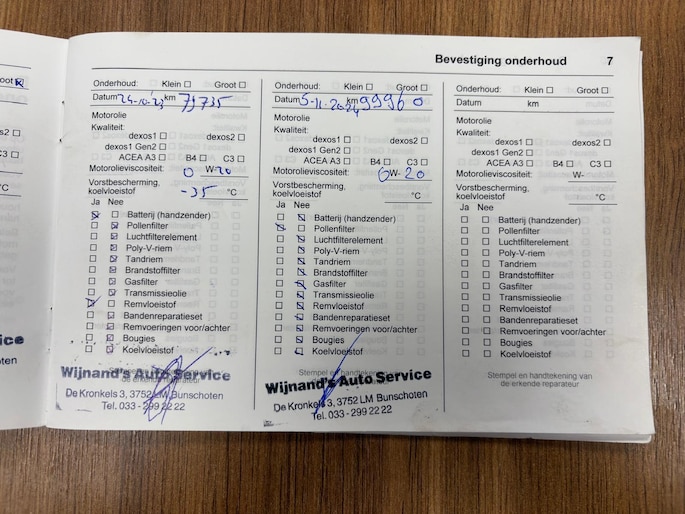 Bevestiging onderhoud 7
oot
s2
C3
ice
oten
Onderhoud: Klein Groot
Datum 24-10-'23 km 79735
Motorolie
Kwaliteit:
dexos1 dexos2
dexos1 Gen2
ACEA A3 B4 C3
Motorolieviscositeit: 0 W-20
Vorstbescherming,
koelvloeistof -35 °C
Ja Nee
Batterij (handzender)
Pollenfilter
Luchtfilterelement
Poly-V-riem
Tandriem
Brandstoffilter
Gasfilter
Transmissieolie
Remvloeistof
Bandenreparatieset
Remvoeringen voor/achter
Bougies
Koelvloeistof
Wijnand's Auto Service
de erkende reparateur
De Kronkels 3, 3752 LM Bunschoten
Tel. 033 - 299 22 22
Onderhoud: Klein Groot
Datum 5-11-2024 km 99960
Motorolie
Kwaliteit:
dexos1 dexos2
dexos1 Gen2
ACEA A3 B4 C3
Motorolieviscositeit: 0 W- 20
Vorstbescherming,
koelvloeistof °C
Ja Nee
Batterij (handzender)
Pollenfilter
Luchtfilterelement
Poly-V-riem
Tandriem
Brandstoffilter
Gasfilter
Transmissieolie
Remvloeistof
Bandenreparatieset
Remvoeringen voor/achter
Bougies
Koelvloeistof
Stempel en handtekening van
Wijnand's Auto Service
De Kronkels 3, 3752 LM Bunschoten
Tel. 033 - 299 22 22
Onderhoud: Klein Groot
Datum km
Motorolie
Kwaliteit:
dexos1 dexos2
dexos1 Gen2
ACEA A3 B4 C3
Motorolieviscositeit: W-
Vorstbescherming,
koelvloeistof °C
Ja Nee
Batterij (handzender)
Pollenfilter
Luchtfilterelement
Poly-V-riem
Tandriem
Brandstoffilter
Gasfilter
Transmissieolie
Remvloeistof
Bandenreparatieset
Remvoeringen voor/achter
Bougies
Koelvloeistof
Stempel en handtekening van
de erkende reparateur